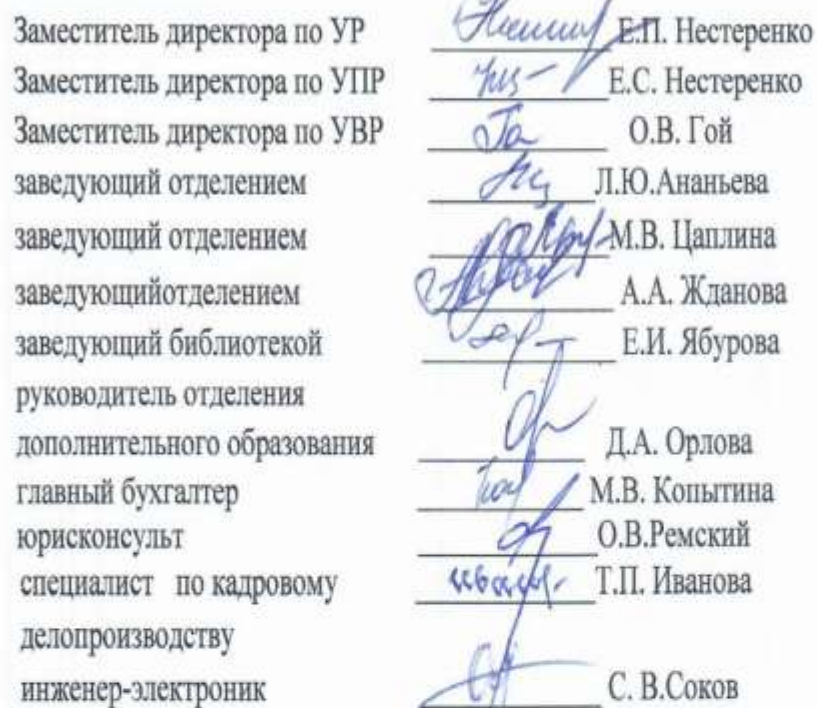 Заместитель директора по УР Е.П. Нестеренко
Заместитель директора по УПР Е.С. Нестеренко
Заместитель директора по УВР О.В. Гой
заведующий отделением Л.Ю.Ананьева
заведующий отделением М.В. Цаплина
заведующийотделением А.А. Жданова
заведующий библиотекой Е.И. Ябурова
руководитель отделения
дополнительного образования Д.А. Орлова
главный бухгалтер М.В. Копытина
юрисконсульт О.В.Ремский
специалист по кадровому Т.П. Иванова
делопроизводству
инженер-электроник С. В.Соков